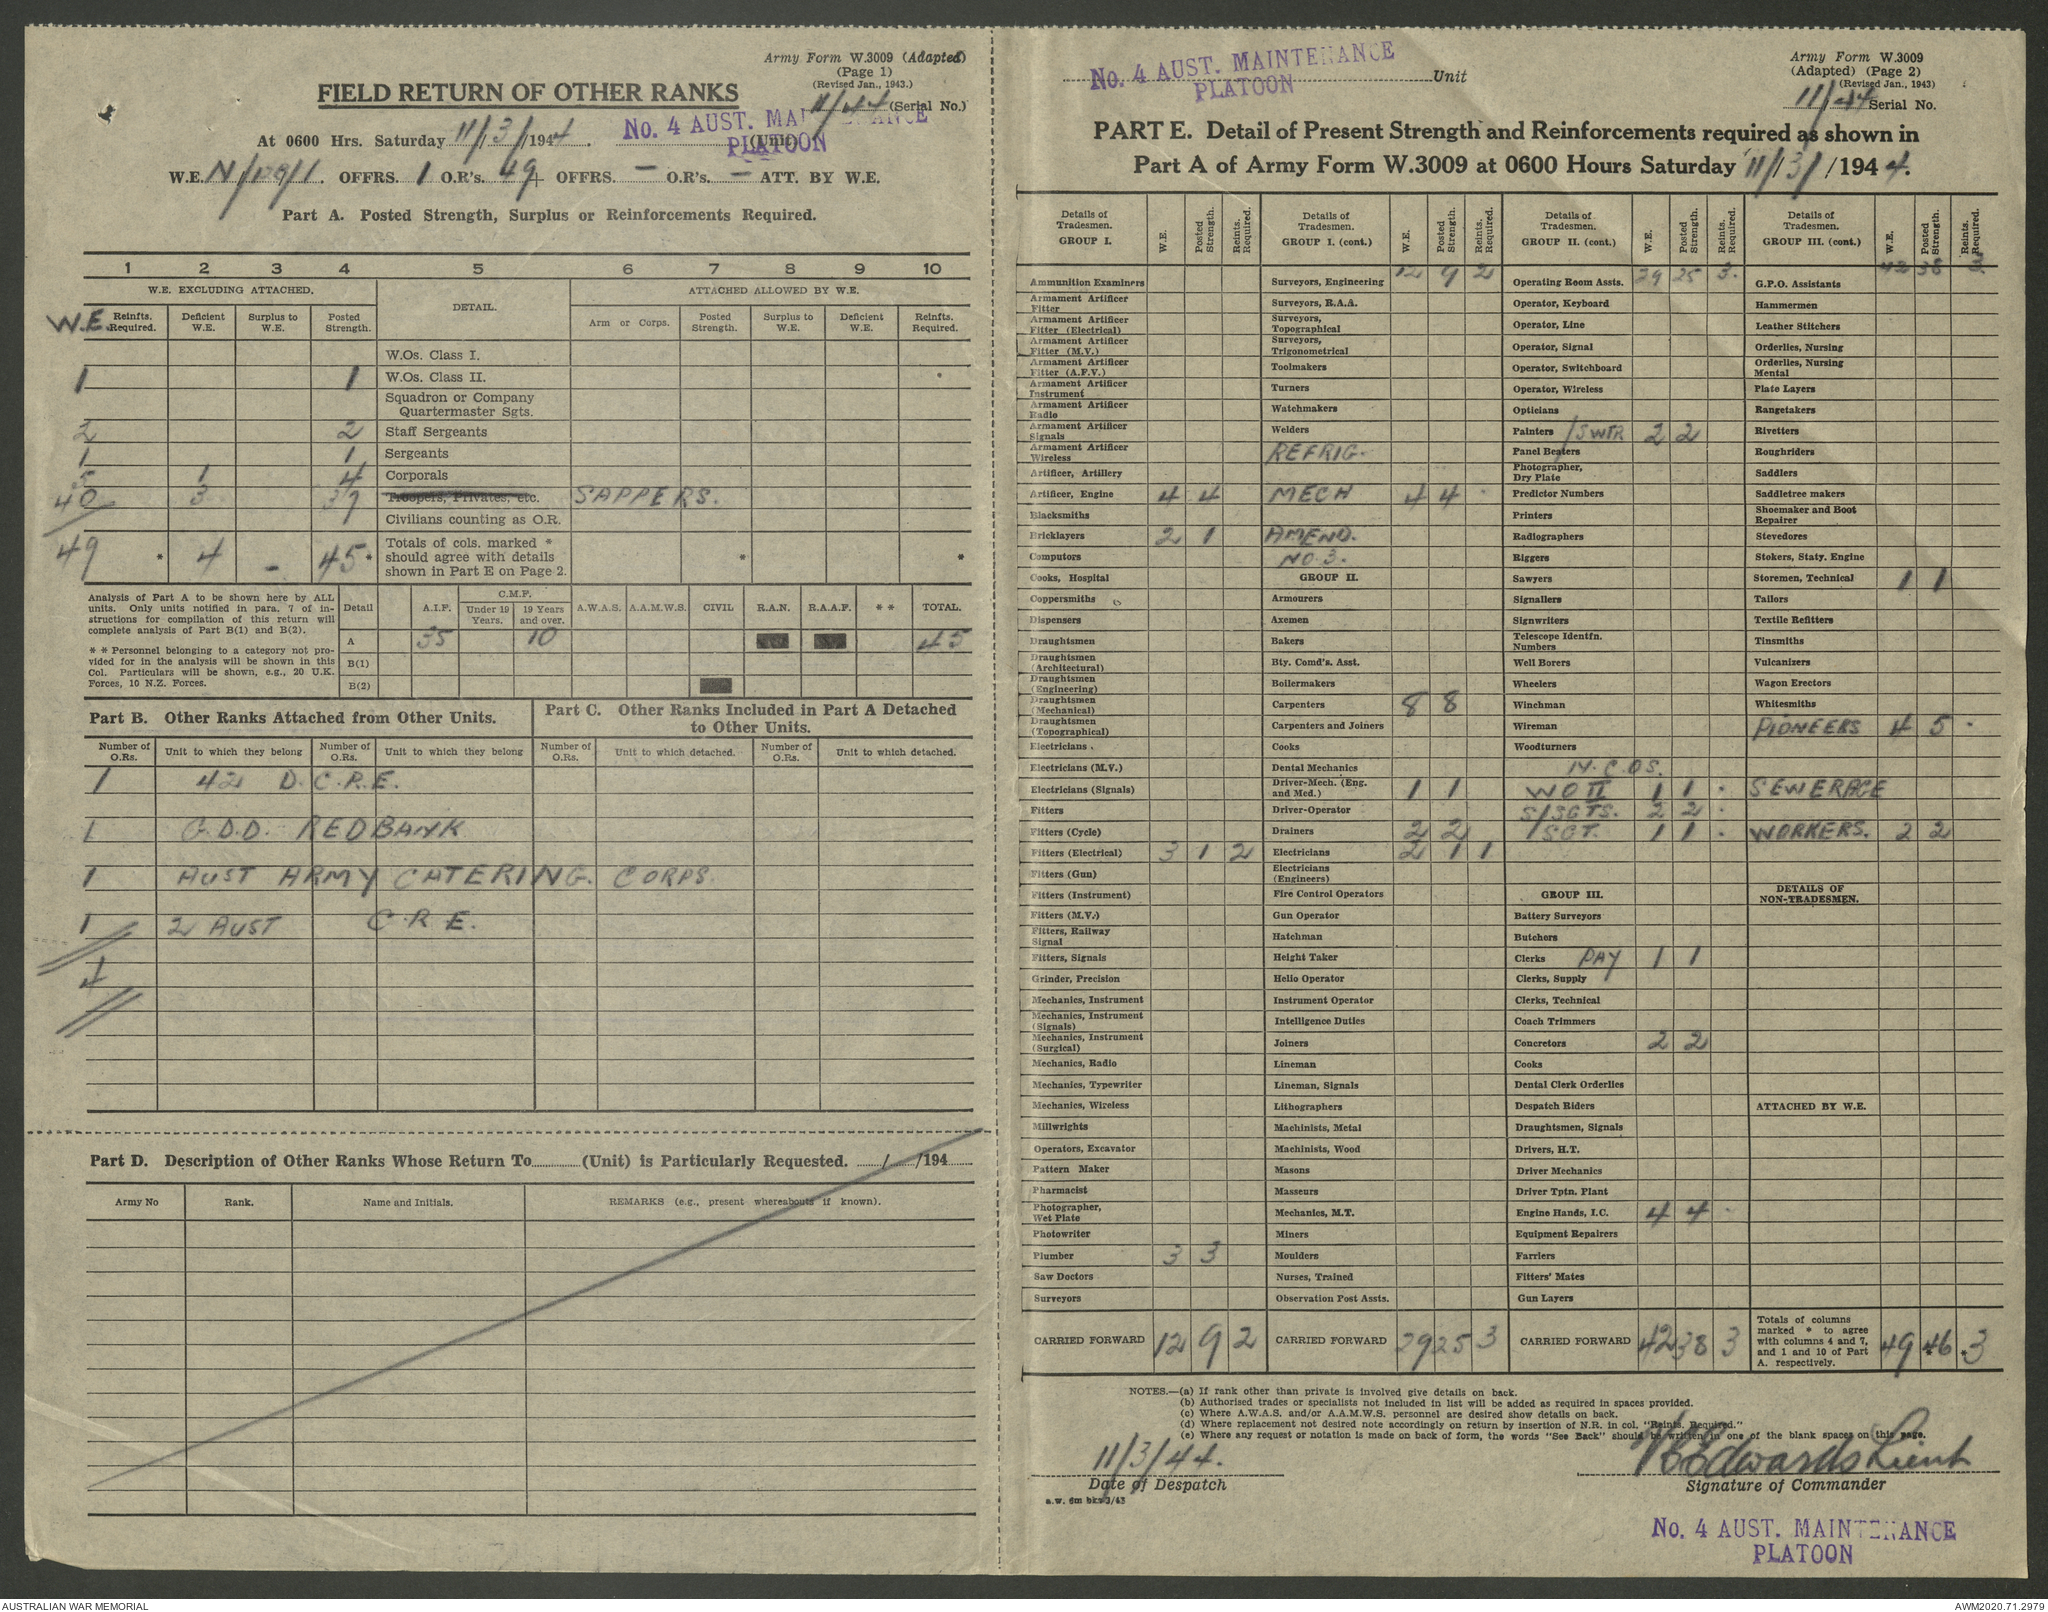 Army Form W.3009 (Adapted)
(Page 1)
(Revised Jan., 1943.)
FIELD RETURN OF OTHER RANKS
11/44 (Serial No.)
At 0600 Hrs. Saturday 11/3/1944. No. 4 AUST. MAINTENANCE PLATOON (Unit)
W.E. N/179/1. OFFRS. 1 O.R's. 49 + OFFRS. — O.R's. — ATT. BY W.E.
Part A. Posted Strength, Surplus or Reinforcements Required.
1 2 3 4 5 6 7 8 9 10
W.E. EXCLUDING ATTACHED. DETAIL. ATTACHED ALLOWED BY W.E.
W.E. Reinfts. Required. Deficient W.E. Surplus to W.E. Posted Strength. Arm or Corps. Posted Strength. Surplus to W.E. Deficient W.E. Reinfts. Required.
W.Os. Class I.
1 1 W.Os. Class II.
Squadron or Company Quartermaster Sgts.
2 2 Staff Sergeants
1 1 Sergeants
5 1 4 Corporals
40 3 37 Troopers, Privates, etc. SAPPERS.
Civilians counting as O.R.
49 * 4 - 45 * Totals of cols. marked * should agree with details shown in Part E on Page 2. * *
Analysis of Part A to be shown here by ALL units. Only units notified in para. 7 of instructions for compilation of this return will complete analysis of Part B(1) and B(2).
* * Personnel belonging to a category not provided for in the analysis will be shown in this Col. Particulars will be shown, e.g., 20 U.K. Forces, 10 N.Z. Forces.
Detail A.I.F. C.M.F. Under 19 Years. 19 Years and over. A.W.A.S. A.A.M.W.S. CIVIL R.A.N. R.A.A.F. * * TOTAL.
A 35 10 45
B(1)
B(2)
Part B. Other Ranks Attached from Other Units.
Part C. Other Ranks Included in Part A Detached to Other Units.
Number of O.Rs. Unit to which they belong Number of O.Rs. Unit to which they belong Number of O.Rs. Unit to which detached. Number of O.Rs. Unit to which detached.
1 42 D.C.R.E.
1 G.D.D. REDBANK
1 AUST ARMY CATERING. CORPS.
1 2 AUST C.R.E.
Part D. Description of Other Ranks Whose Return To (Unit) is Particularly Requested. / /194
Army No Rank. Name and Initials. REMARKS (e.g., present whereabouts if known).
No. 4 AUST. MAINTENANCE PLATOON Unit
Army Form W.3009
(Adapted) (Page 2)
(Revised Jan., 1943)
11/44 Serial No.
PART E. Detail of Present Strength and Reinforcements required as shown in
Part A of Army Form W.3009 at 0600 Hours Saturday 11/3/1944.
Details of Tradesmen. GROUP I. W.E. Posted Strength. Reints. Required.
Ammunition Examiners
Armament Artificer Fitter
Armament Artificer Fitter (Electrical)
Armament Artificer Fitter (M.V.)
Armament Artificer Fitter (A.F.V.)
Armament Artificer Instrument
Armament Artificer Radio
Armament Artificer Signals
Armament Artificer Wireless
Artificer, Artillery
Artificer, Engine 4 4
Blacksmiths
Bricklayers 2 1
Computors
Cooks, Hospital
Coppersmiths
Dispensers
Draughtsmen
Draughtsmen (Architectural)
Draughtsmen (Engineering)
Draughtsmen (Mechanical)
Draughtsmen (Topographical)
Electricians
Electricians (M.V.)
Electricians (Signals)
Fitters
Fitters (Cycle)
Fitters (Electrical) 3 1 2
Fitters (Gun)
Fitters (Instrument)
Fitters (M.V.)
Fitters, Railway Signal
Fitters, Signals
Grinder, Precision
Mechanics, Instrument
Mechanics, Instrument (Signals)
Mechanics, Instrument (Surgical)
Mechanics, Radio
Mechanics, Typewriter
Mechanics, Wireless
Millwrights
Operators, Excavator
Pattern Maker
Pharmacist
Photographer, Wet Plate
Photowriter
Plumber 3 3
Saw Doctors
Surveyors
CARRIED FORWARD 12 9 2
Details of Tradesmen. GROUP I. (cont.) W.E. Posted Strength. Reints. Required.
Surveyors, Engineering 12 9 2
Surveyors, R.A.A.
Surveyors, Topographical
Surveyors, Trigonometrical
Toolmakers
Turners
Watchmakers
Welders
REFRIG.
MECH 4 4
AMEND.
NO. 3.
GROUP II.
Armourers
Axemen
Bakers
Bty. Comd's. Asst.
Boilermakers
Carpenters 8 8
Carpenters and Joiners
Cooks
Dental Mechanics
Driver-Mech. (Eng. and Med.) 1 1
Driver-Operator
Drainers 2 2
Electricians 2 1 1
Electricians (Engineers)
Fire Control Operators
Gun Operator
Hatchman
Height Taker
Helio Operator
Instrument Operator
Intelligence Duties
Joiners
Lineman
Lineman, Signals
Lithographers
Machinists, Metal
Machinists, Wood
Masons
Masseurs
Mechanics, M.T.
Miners
Moulders
Nurses, Trained
Observation Post Assts.
CARRIED FORWARD 29 25 3
Details of Tradesmen. GROUP II. (cont.) W.E. Posted Strength. Reints. Required.
Operating Room Assts. 29 25 3.
Operator, Keyboard
Operator, Line
Operator, Signal
Operator, Switchboard
Operator, Wireless
Opticians
Painters /SWTR 2 2
Panel Beaters
Photographer, Dry Plate
Predictor Numbers
Printers
Radiographers
Riggers
Sawyers
Signallers
Signwriters
Telescope Identfn. Numbers
Well Borers
Wheelers
Winchman
Wireman
Woodturners
WO II 1 1
S/SGTS. 2 2
SGT. 1 1
GROUP III.
Battery Surveyors
Butchers
Clerks PAY 1 1
Clerks, Supply
Clerks, Technical
Coach Trimmers
Concretors 2 2
Cooks
Dental Clerk Orderlies
Despatch Riders
Draughtsmen, Signals
Drivers, H.T.
Driver Mechanics
Driver Tptn. Plant
Engine Hands, I.C. 4 4
Equipment Repairers
Farriers
Fitters' Mates
Gun Layers
CARRIED FORWARD 42 38 3
Details of Tradesmen. GROUP III. (cont.) W.E. Posted Strength. Reints. Required.
G.P.O. Assistants 42 38 3
Hammermen
Leather Stitchers
Orderlies, Nursing
Orderlies, Nursing Mental
Plate Layers
Rangetakers
Rivetters
Roughriders
Saddlers
Saddletree makers
Shoemaker and Boot Repairer
Stevedores
Stokers, Staty. Engine
Storemen, Technical 1 1
Tailors
Textile Refitters
Tinsmiths
Vulcanizers
Wagon Erectors
Whitesmiths
PIONEERS 4 5
SEWERAGE
WORKERS. 2 2
DETAILS OF NON-TRADESMEN.
ATTACHED BY W.E.
Totals of columns marked * to agree with columns 4 and 7, and 1 and 10 of Part A. respectively. 49 *46 *3
NOTES.—(a) If rank other than private is involved give details on back.
(b) Authorised trades or specialists not included in list will be added as required in spaces provided.
(c) Where A.W.A.S. and/or A.A.M.W.S. personnel are desired show details on back.
(d) Where replacement not desired note accordingly on return by insertion of N.R. in col. "Reints. Required."
(e) Where any request or notation is made on back of form, the words "See Back" should be written in one of the blank spaces on this page.
11/3/44.
Date of Despatch
Edwards Lieut
Signature of Commander
a.w. 6m bks 3/43
No. 4 AUST. MAINTENANCE
PLATOON
AUSTRALIAN WAR MEMORIAL
AWM2020.71.2979